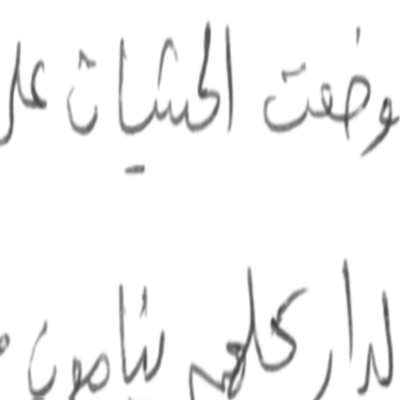 وضعت الحشيات على
لدار كلهم ينامون